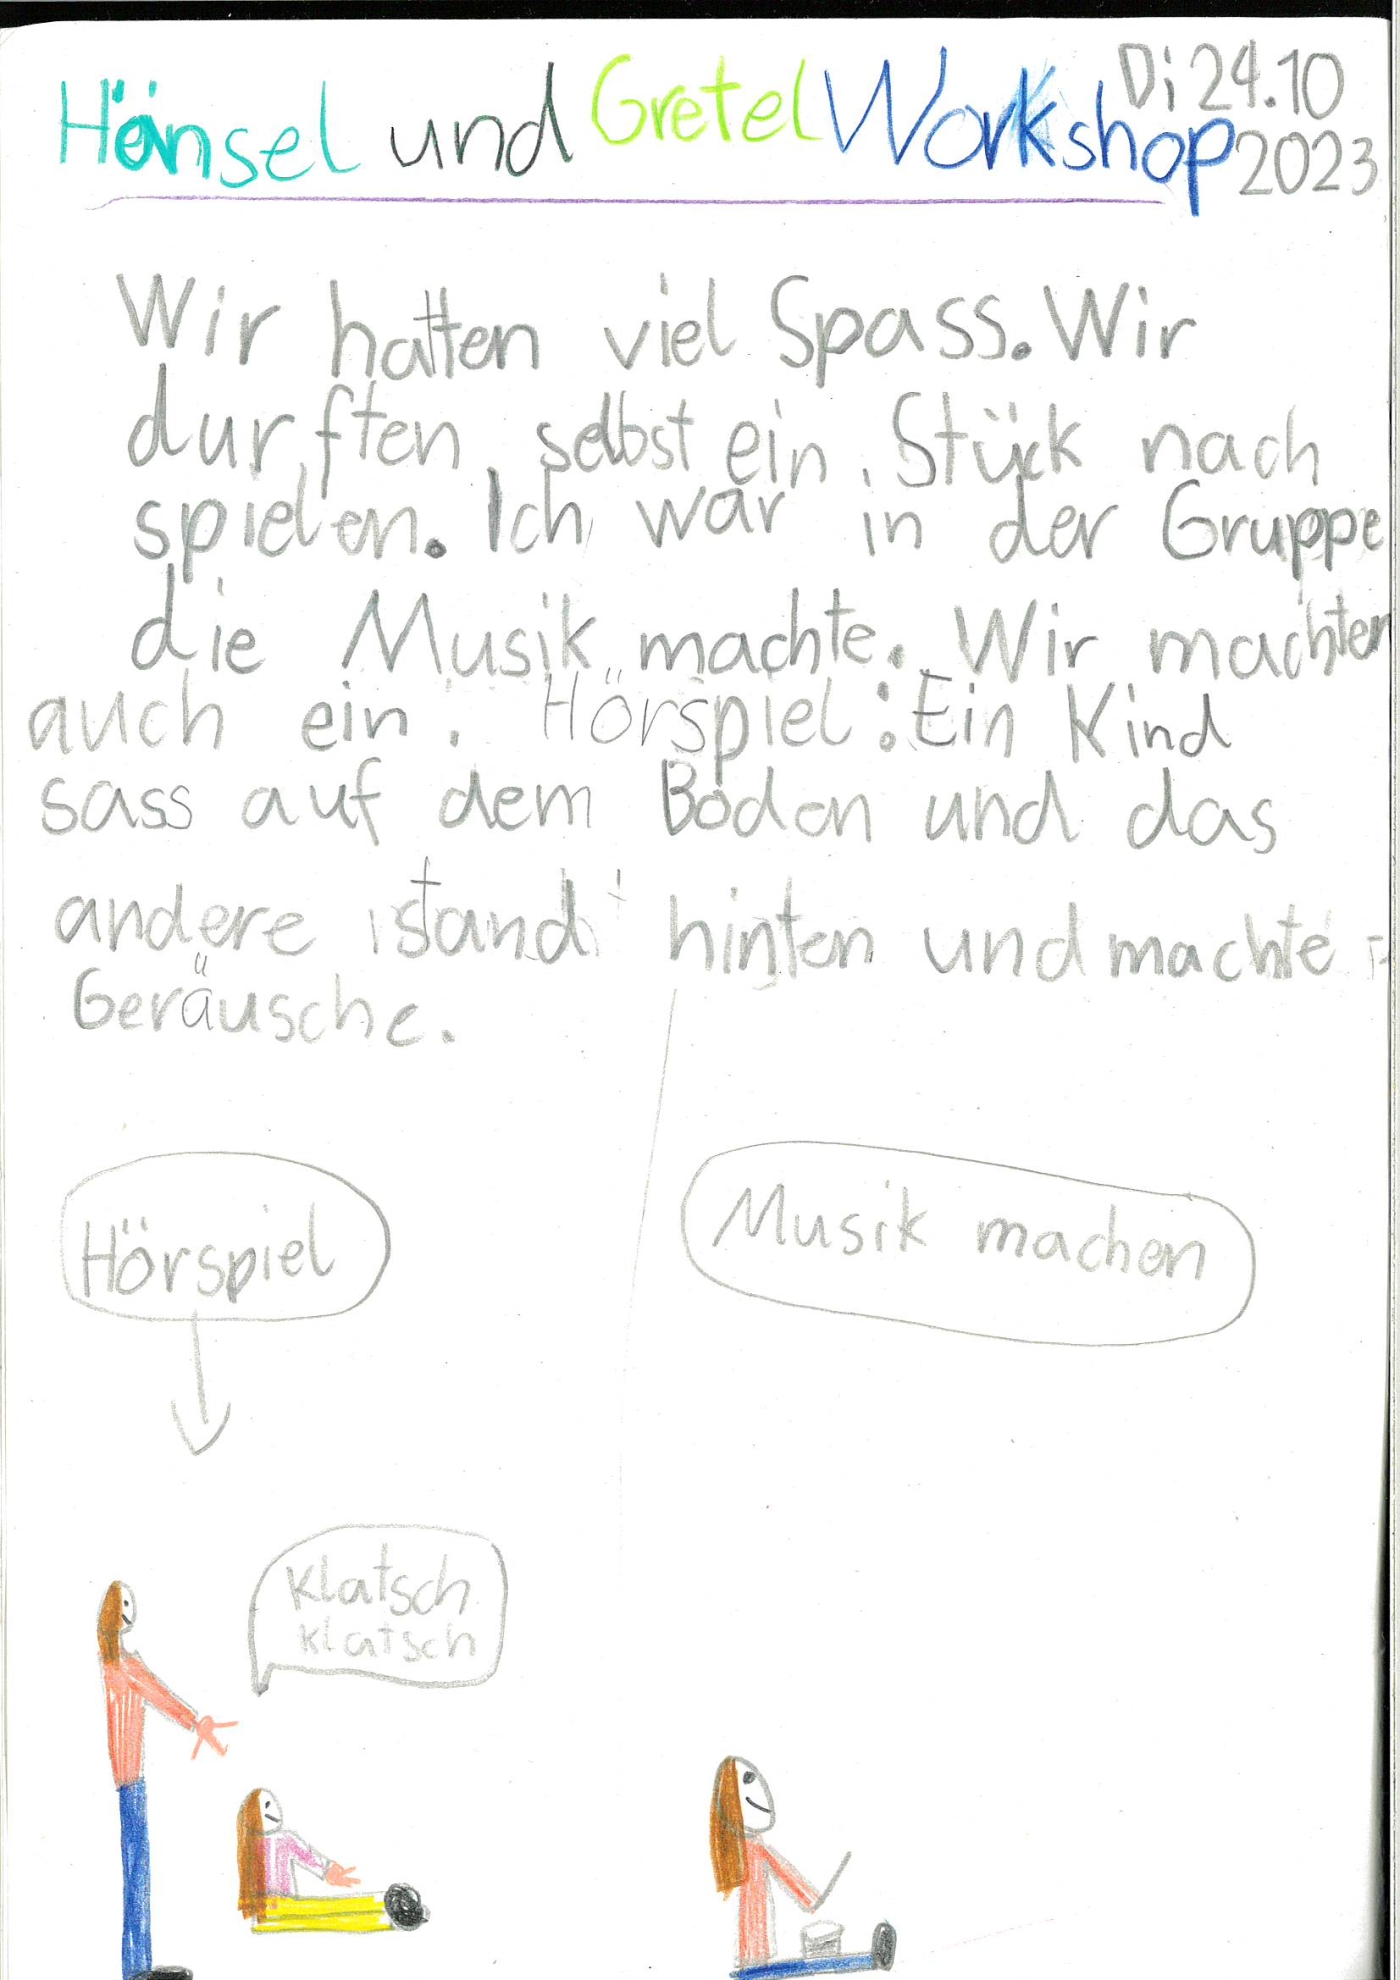 Hänsel und Gretel Workshop Di 24.10
2023
Wir hatten viel Spass. Wir
durften selbst ein Stück nach
spielen. Ich war in der Gruppe
die Musik machte. Wir machten
auch ein Hörspiel: Ein Kind
sass auf dem Boden und das
andere stand hinten und machte
Geräusche.
Hörspiel
Musik machen
Klatsch
klatsch